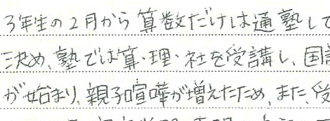 3年生の2月から算数だけは通塾して
決め、塾では算・理・社を受講し、国
が始まり、親子喧嘩が増えたため、また、受